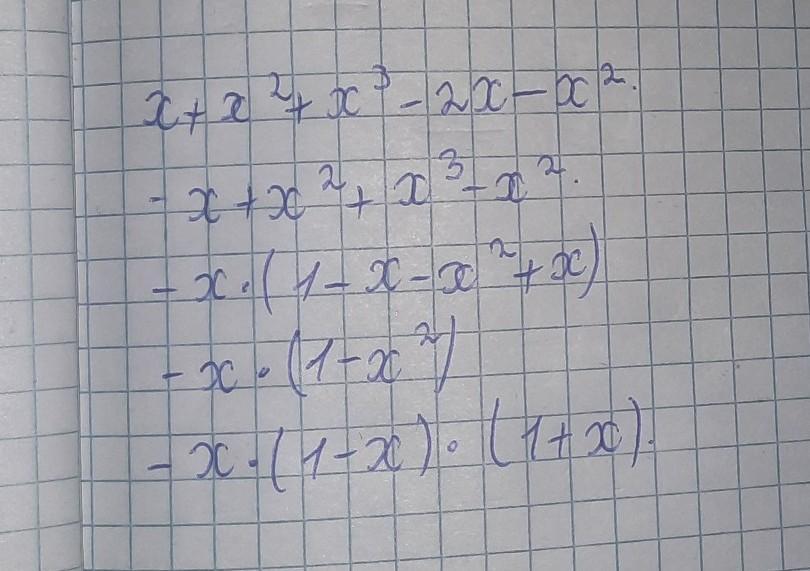 x+x²+x³-2x-x².
-x+x²+x³-x².
-x·(1-x-x²+x)
-x·(1-x²)
-x·(1-x)·(1+x).